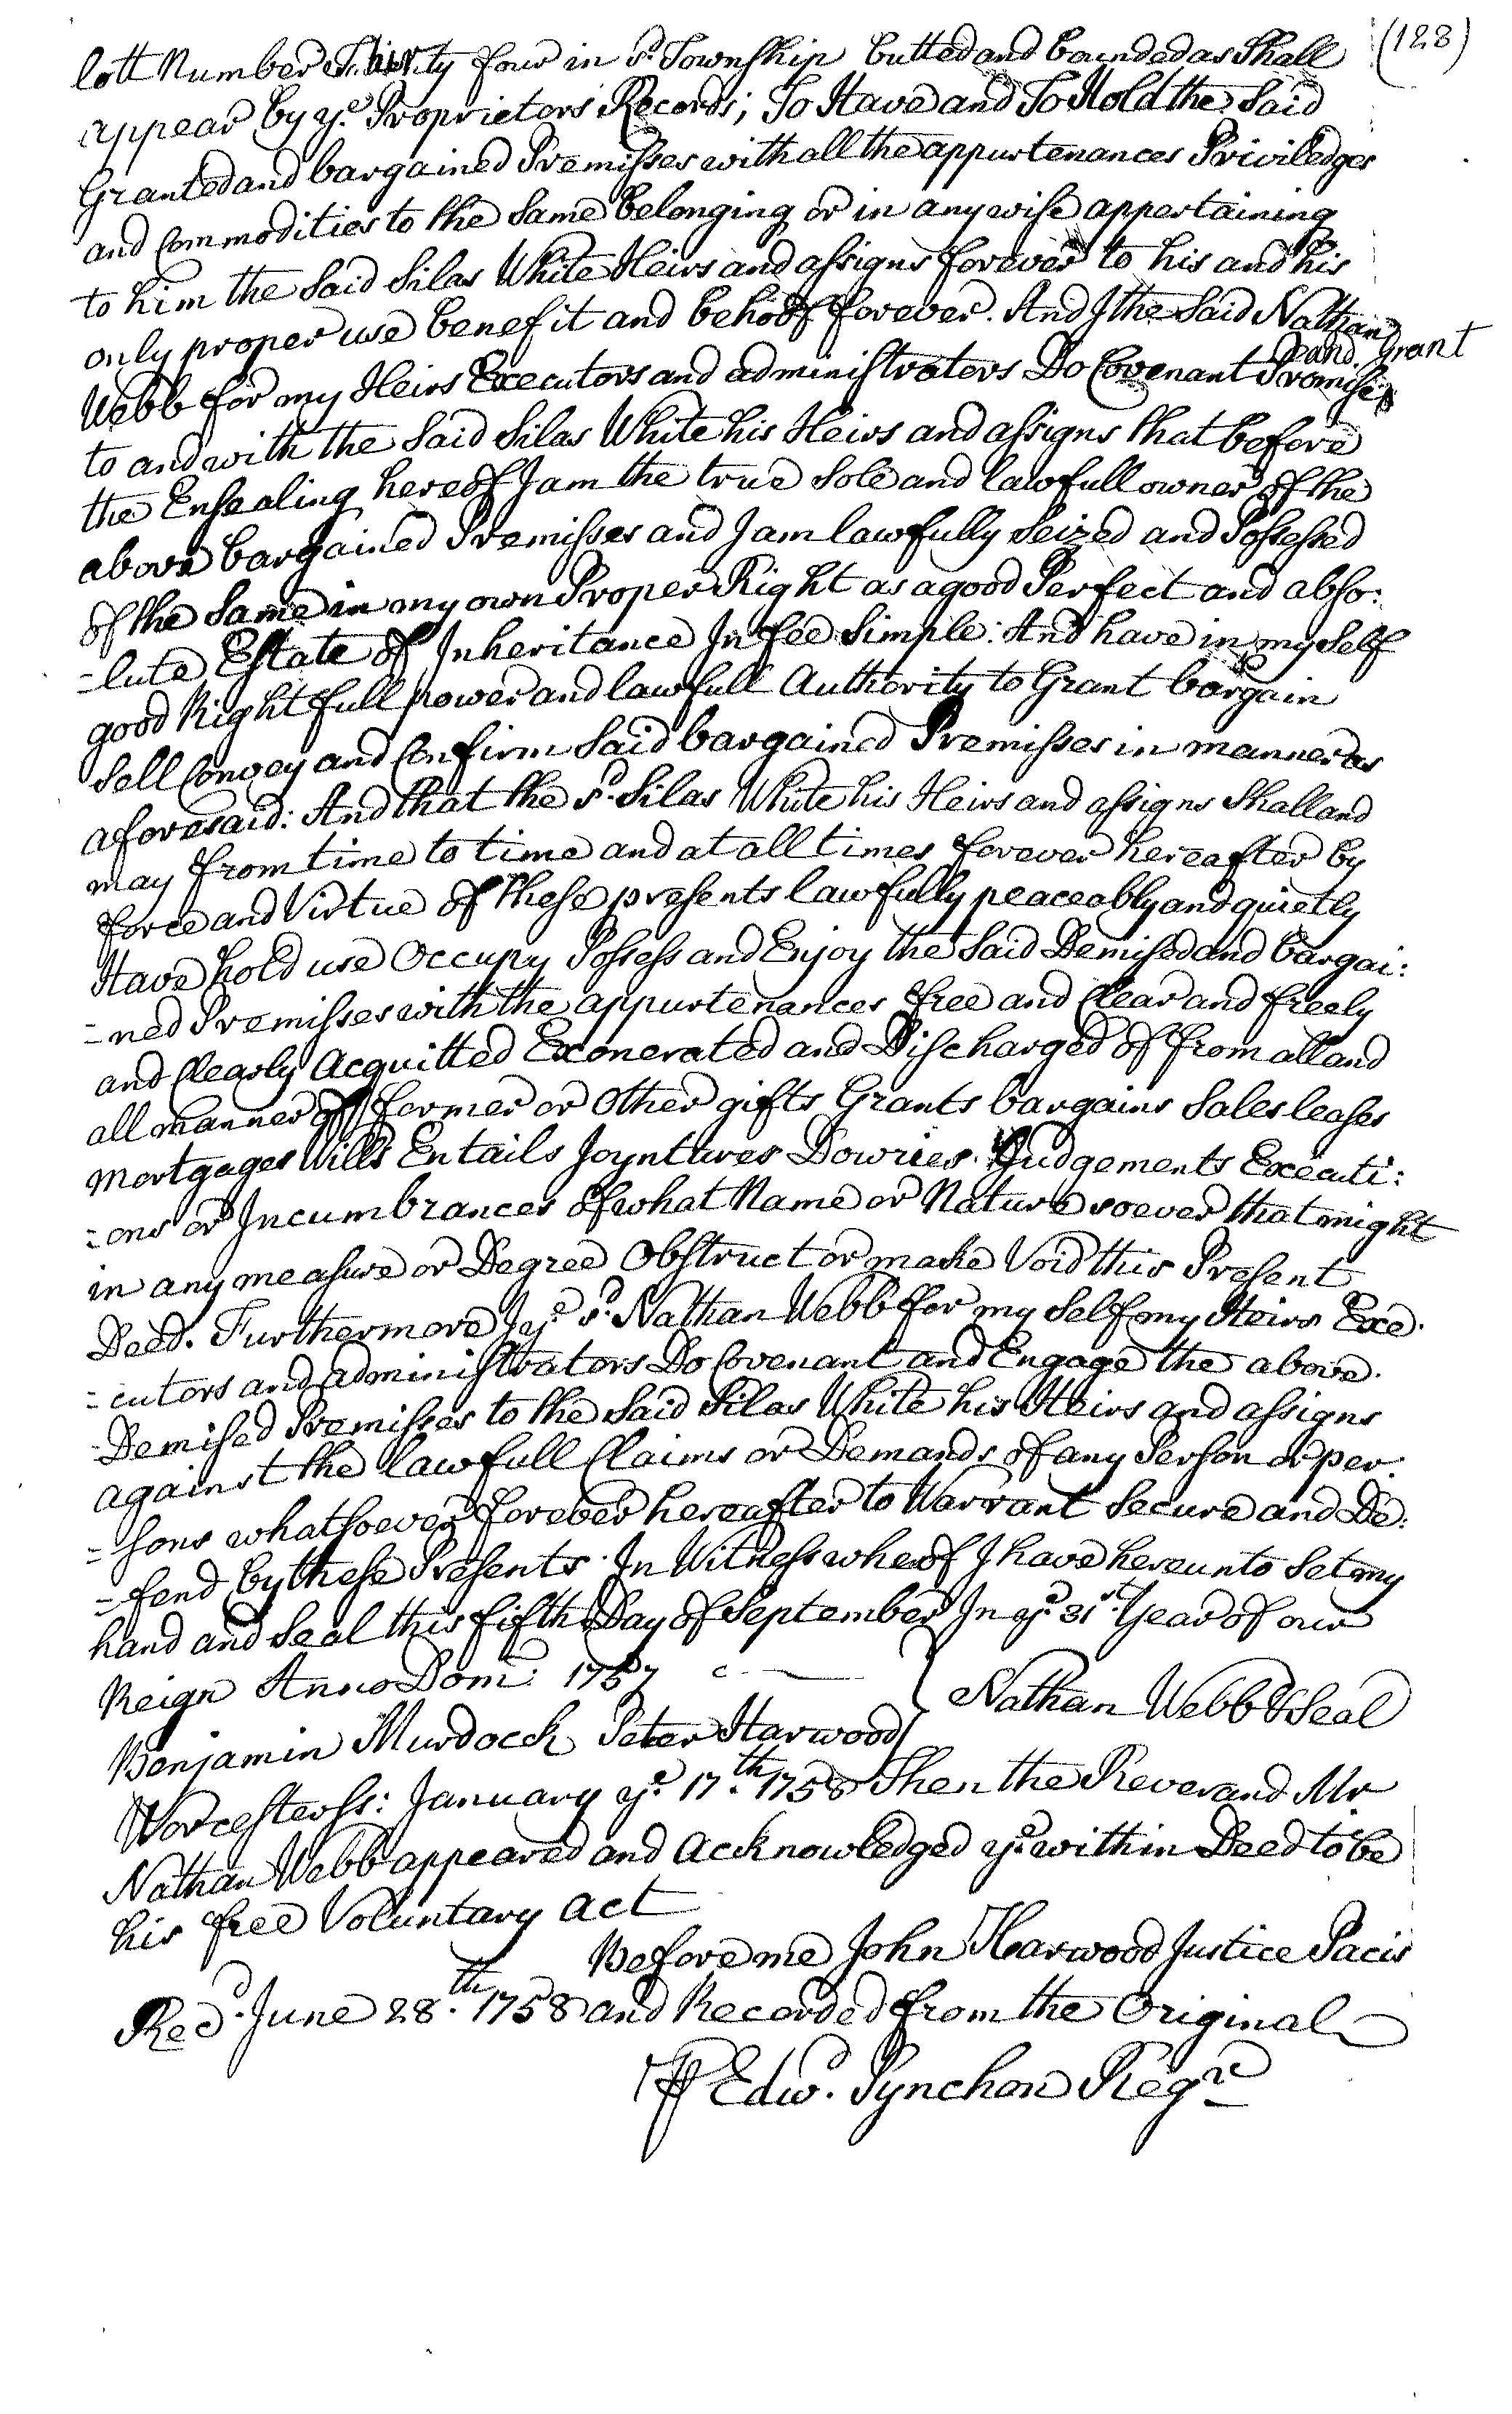 (128)
lott Number Thirty four in sd. Township butted and bounded as Shall
appear by ye. Proprietors Records; To Have and To Hold the Said
Granted and bargained Premisses with all the appurtenances Priviledges
and Commodities to the Same belonging or in any wise appertaining
to him the Said Silas White Heirs and assigns forever to his and his
only proper use benefit and behoof forever. And I the Said Nathan
Webb for my Heirs Executors and administrators Do Covenant Promise and Grant
to and with the Said Silas White his Heirs and assigns that before
the Ensealing hereof I am the true Sole and lawfull owner of the
above bargained Premisses and I am lawfully Seized and Possessed
of the Same in my own Proper Right as a good Perfect and abso:
=lute Estate of Inheritance In fee Simple: And have in my Self
good Right full power and lawfull Authority to Grant bargain
Sell Convey and Confirm Said bargained Premisses in manner as
aforesaid: And that the sd. Silas White his Heirs and assigns Shall and
may from time to time and at all times forever hereafter by
force and Virtue of these presents lawfully peaceably and quietly
Have hold use Occupy Possess and Enjoy the Said Demised and bargai:
=ned Premisses with the appurtenances free and Clear and freely
and Clearly Acquitted Exonerated and Discharged of from all and
all manner of former or Other gifts Grants bargains Sales leases
Mortgages Wills Entails Joyntures Dowries Judgements Executi:
=ons or Incumbrances of what Name or Nature soever that might
in any measure or Degree Obstruct or make Void this Present
Deed. Furthermore I ye. sd. Nathan Webb for my Self my Heirs Exe.
=cutors and administrators Do Covenant and Engage the above.
=Demised Premisses to the Said Silas White his Heirs and assigns
against the lawfull Claims or Demands of any Person or per:
=sons whatsoever forever hereafter to Warrant Secure and De:
=fend by these Presents. In Witness whereof I have hereunto Set my
hand and Seal this fifth Day of September In ye. 31st. Year of our
Reign Anno Dom: 1757
Nathan Webb & Seal
Benjamin Murdock Peter Harwood
Worcester ss: January ye. 17.th 1758 Then the Reverand Mr
Nathan Webb appeared and Acknowledged ye. within Deed to be
his free Voluntary Act
Before me John Harwood Justice Pacis
Recd. June 28.th 1758 and Recorded from the Original
Edwd. Pynchon Regr